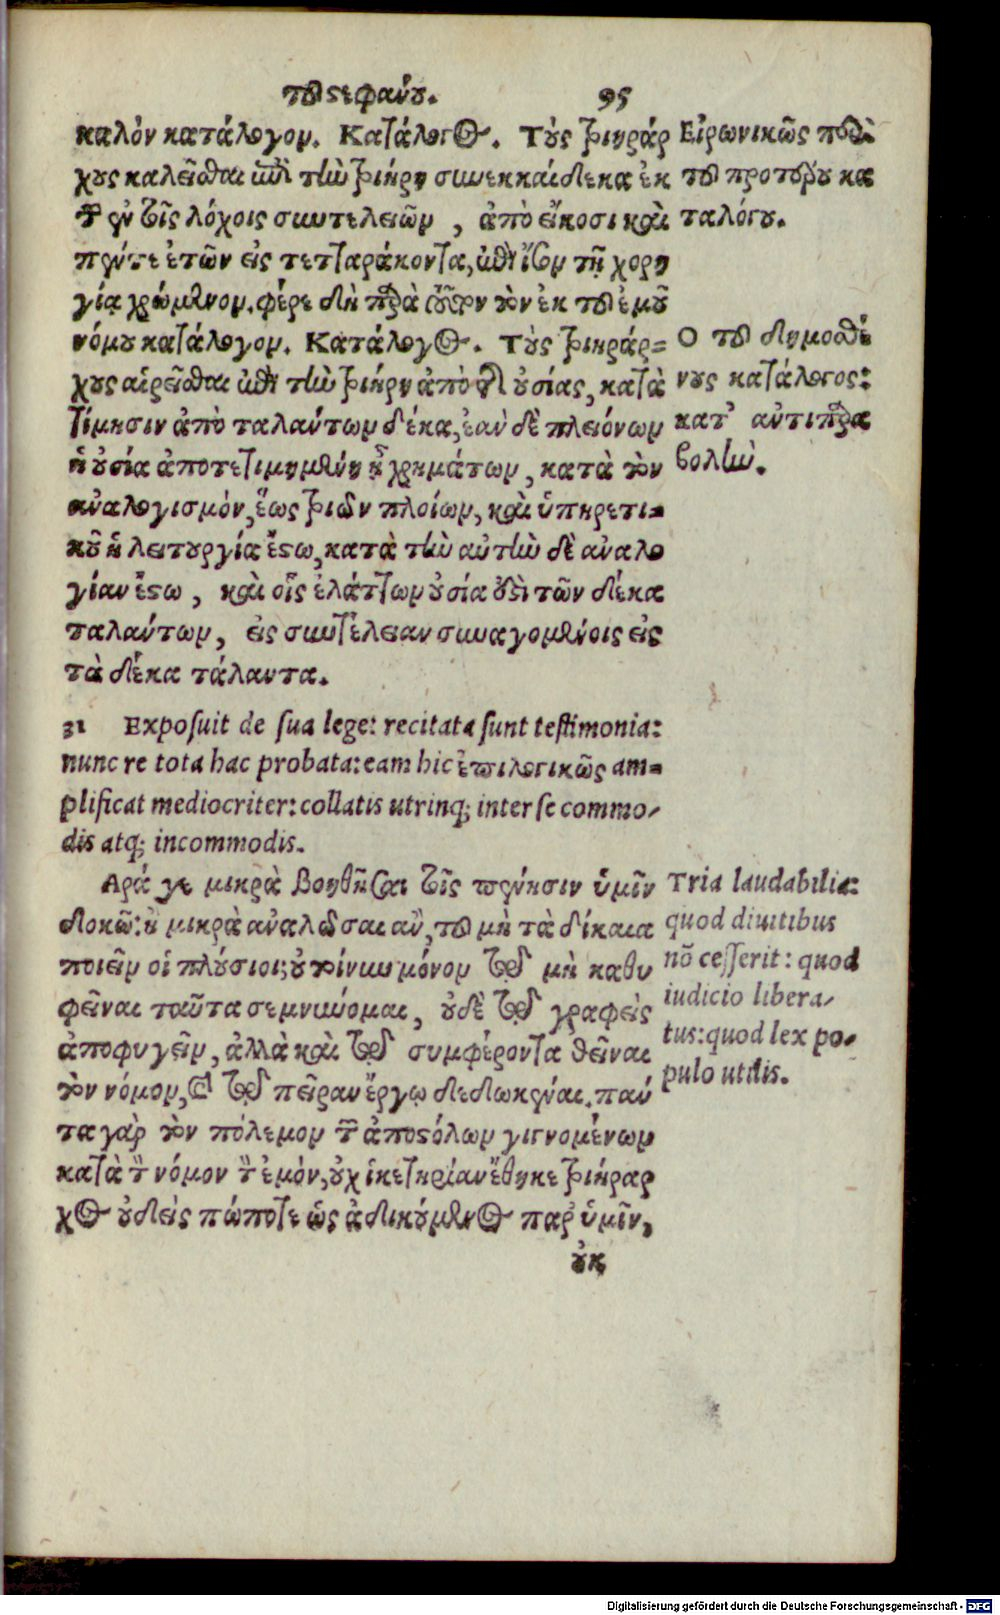 τοῦ στεφάνου. 95
καλὸν κατάλογον. Κατάλογος. Τοὺς τριηράρ
χους καλεῖσθαι ἐπὶ τὴν τριήρη συνεκκαίδεκα ἐκ
τῶν ἐν τοῖς λόχοις συντελειῶν, ἀπὸ εἴκοσι καὶ
πέντε ἐτῶν εἰς τετταράκοντα, ἐπὶ ἴσον τῇ χορη
γίᾳ χρώμενον. φέρε δὴ παρὰ τοῦτον τὸν ἐκ τοῦ ἐμοῦ
νόμου κατάλογον. Κατάλογος. Τοὺς τριηράρ=
χους αἱρεῖσθαι ἐπὶ τὴν τριήρη ἀπὸ τῆς οὐσίας, κατὰ
τίμησιν ἀπὸ ταλάντων δέκα, ἐὰν δὲ πλειόνων
ἡ οὐσία ἀποτετιμημένη ᾖ χρημάτων, κατὰ τὸν
ἀναλογισμὸν, ἕως τριῶν πλοίων, καὶ ὑπηρετι=
κοῦ ἡ λειτουργία ἔστω, κατὰ τὴν αὐτὴν δὲ ἀναλο
γίαν ἔστω, καὶ οἷς ἐλάττων οὐσία ἐστὶ τῶν δέκα
ταλάντων, εἰς συντέλειαν συναγομένοις εἰς
τὰ δέκα τάλαντα.
Εἰρωνικῶς περὶ
τοῦ προτέρου κα
ταλόγου.
Ο τοῦ δημοσθέ
νους κατάλογος:
κατ' ἀντιπαρα
βολήν.
31 Exposuit de sua lege: recitata sunt testimonia:
nunc re tota hac probata: eam hic ἐπιλογικῶς am=
plificat mediocriter: collatis utrinq; inter se commo/
dis atq; incommodis.
Αρά γε μικρὰ βοηθῆσαι τοῖς πένησιν ὑμῖν
δοκῶ: ἢ μικρὰ ἀναλῶσαι ἂν, τοῦ μὴ τὰ δίκαια
ποιεῖν οἱ πλούσιοι; οὐ τοίνυν μόνον τῷ μὴ καθυ
φεῖναι ταῦτα σεμνύνομαι, οὐδὲ τῷ γραφεὶς
ἀποφυγεῖν, ἀλλὰ καὶ τῷ συμφέροντα θεῖναι
τὸν νόμον, καὶ τῷ πεῖραν ἔργῳ δεδωκέναι. πάν
τα γὰρ τὸν πόλεμον τῶν ἀποστόλων γιγνομένων
κατὰ τὸν νόμον τὸν ἐμὸν, οὐχ ἱκετηρίαν ἔθηκε τριήραρ
χος οὐδεὶς πώποτε ὡς ἀδικούμενος παρ' ὑμῖν,
οὐκ
Tria laudabilia:
quod diuitibus
nõ cesserit: quod
iudicio libera/
tus: quod lex po/
pulo utilis.
Digitalisierung gefördert durch die Deutsche Forschungsgemeinschaft - DFG